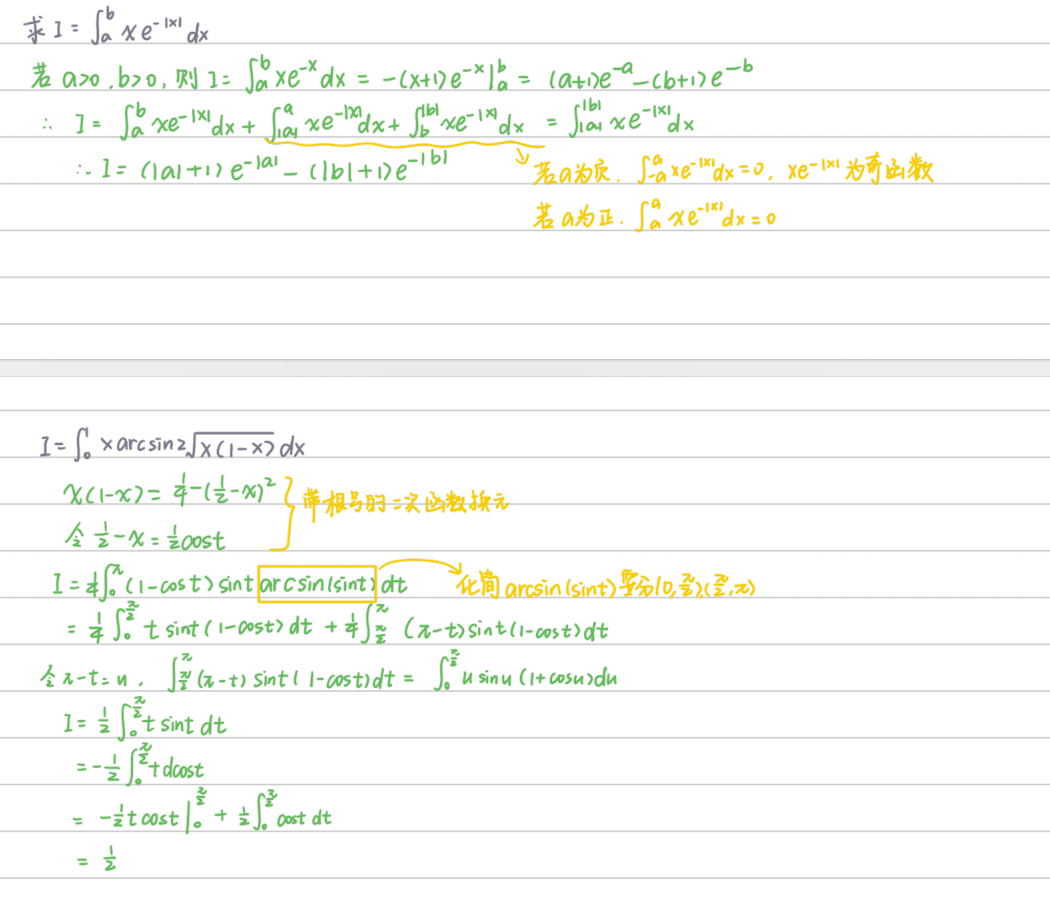 求 I = ∫_a^b xe^{-|x|} dx
若 a>0, b>0, 则 I = ∫_a^b xe^{-x} dx = -(x+1)e^{-x}|_a^b = (a+1)e^{-a} - (b+1)e^{-b}
∴ I = ∫_a^b xe^{-|x|}dx + ∫_{|a|}^a xe^{-|x|}dx + ∫_b^{|b|} xe^{-|x|}dx = ∫_{|a|}^{|b|} xe^{-|x|}dx
∴ I = (|a|+1)e^{-|a|} - (|b|+1)e^{-|b|}
若a为负. ∫_{-a}^a xe^{-|x|}dx = 0, xe^{-|x|}为奇函数
若a为正. ∫_a^a xe^{-|x|}dx = 0
I = ∫_0^1 x arcsin2√x(1-x) dx
x(1-x) = 1/4 - (1/2 - x)^2
带根号的二次函数换元
令 1/2 - x = 1/2 cost
I = 1/4 ∫_0^π (1-cost) sint arcsin(sint) dt
化简 arcsin(sint) 要分(0, π/2), (π/2, π)
= 1/4 ∫_0^{π/2} t sint (1-cost) dt + 1/4 ∫_{π/2}^π (π-t) sint (1-cost) dt
令 π-t = u, ∫_{π/2}^π (π-t) sint (1-cost) dt = ∫_0^{π/2} u sinu (1+cosu) du
I = 1/2 ∫_0^{π/2} t sint dt
= -1/2 ∫_0^{π/2} t dcost
= -1/2 t cost |_0^{π/2} + 1/2 ∫_0^{π/2} cost dt
= 1/2